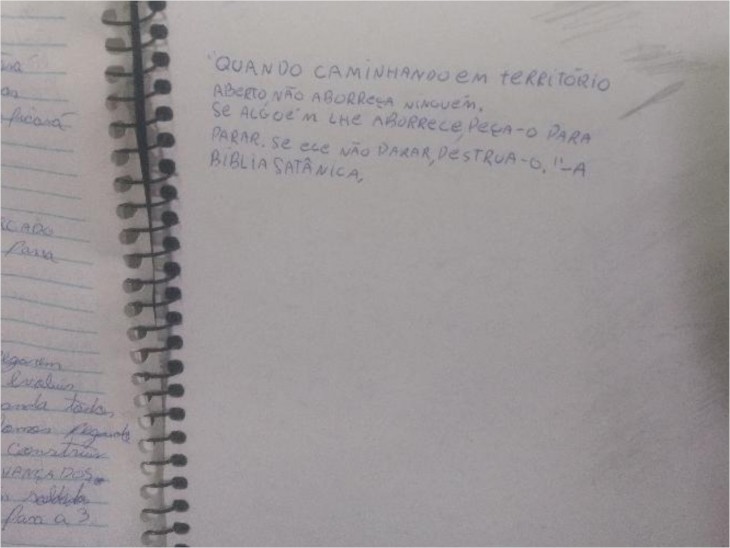 "QUANDO CAMINHANDO em teRRitÓRIO
ABERTO NÃO ABORREÇA NINGUÉM.
Se ALGUÉM LHE ABORRECE, PEÇA-O PARA
PARAR. Se ELE NÃO PARAR, DeSTRUA-O. "-A
BÍBLIA SATÂNICA.
ficará
para
evoluir
todos
construir
AVANÇADOS
para a 3